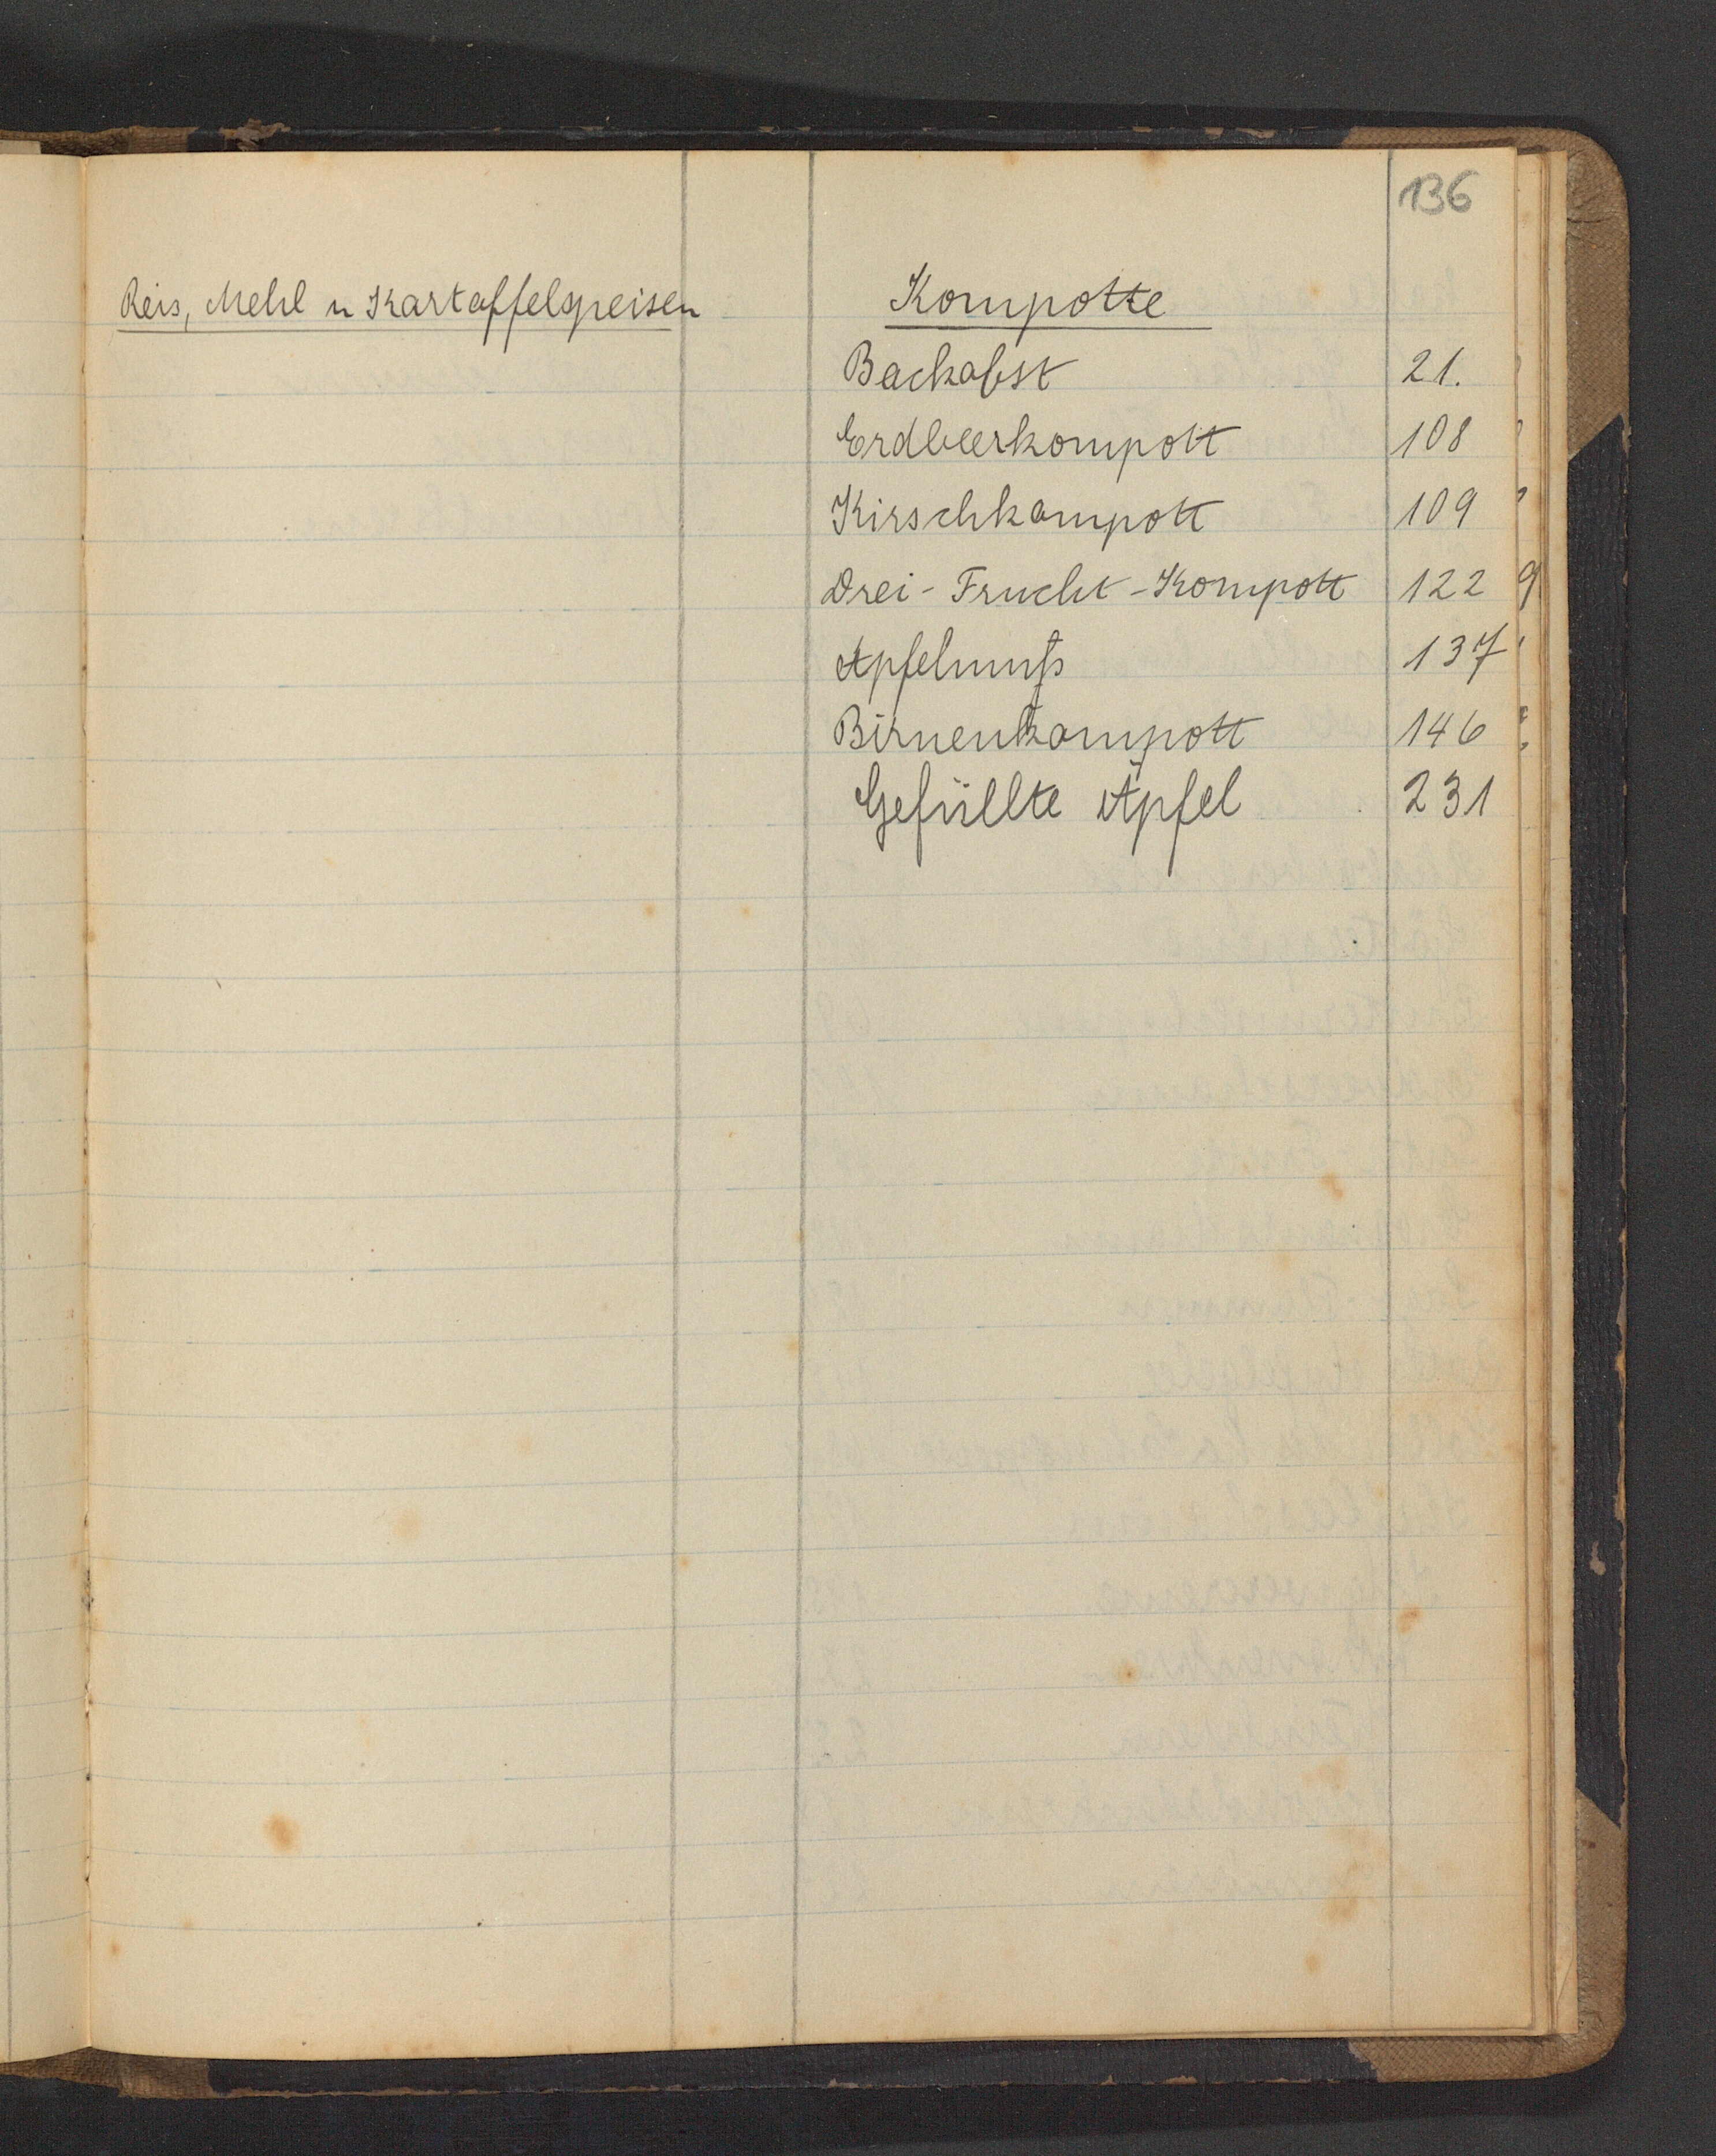 136
Reis, Mehl u Kartoffelspeisen
Kompotte
Backobst 21.
Erdbeerkompott 108
Kirschkompott 109
Drei-Frucht-Kompott 122
Apfelmuß 137
Birnenkompott 146
Gefüllte Äpfel 231